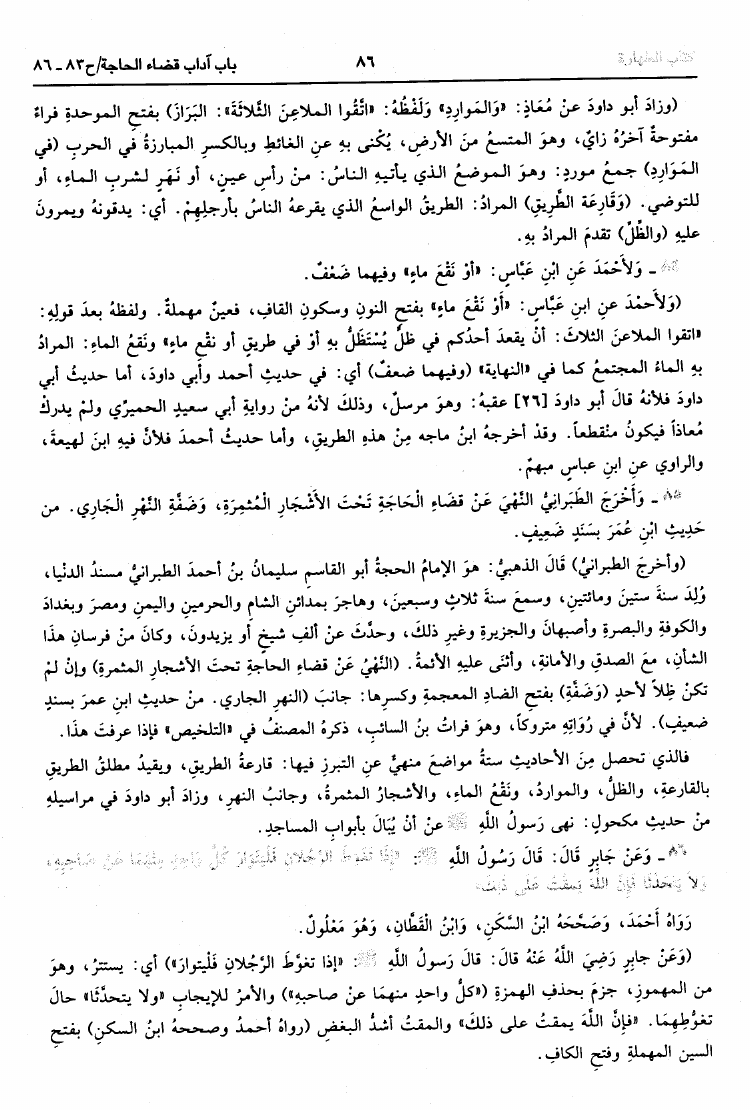 كتاب الطهارة ٨٦ باب آداب قضاء الحاجة/ح٨٣ ـ ٨٦
(وزادَ أبو داودَ عنْ مُعَاذٍ: «وَالمَوارِدِ» وَلَفْظُهُ: «اتَّقُوا المَلاعنَ الثَّلاثَةَ»: البَرَازَ) بفتحِ الموحدةِ فراءٌ
مفتوحةٌ آخرُهُ زايٌ، وهوَ المتسعُ منَ الأرضِ، يُكْنى بهِ عنِ الغائطِ وبالكسرِ المبارزةُ في الحربِ (في
المَوَارِدِ) جمعُ موردٍ: وهوَ الموضعُ الذي يأتيهِ الناسُ: منْ رأسِ عينٍ، أو نَهَرٍ لشربِ الماءِ، أو
للتوضي. (وَقَارِعَةِ الطَّرِيقِ) المرادُ: الطريقُ الواسعُ الذي يقرعهُ الناسُ بأرجلِهِمْ. أي: يدقونهُ ويمرونَ
عليهِ (والظِّلِّ) تقدمَ المرادُ بهِ.
٨٤ ـ وَلأَحْمَدَ عَنِ ابْنِ عَبَّاسٍ: «أوْ نَقْعَ ماءٍ» وفيهما ضَعْفٌ.
(وَلأَحْمَدَ عنِ ابنِ عَبَّاسٍ: «أَوْ نَقْعَ ماءٍ» بفتحِ النونِ وسكونِ القافِ، فعينٌ مهملةٌ. ولفظهُ بعدَ قولِهِ:
«اتقوا الملاعنَ الثلاثَ: أنْ يقعدَ أحدُكم في ظلٍّ يُسْتَظَلُّ بهِ أوْ في طريقٍ أو نقْعِ ماءٍ» ونَقعُ الماءِ: المرادُ
بهِ الماءُ المجتمعُ كما في «النهايةِ» (وفيهما ضعفٌ) أي: في حديثِ أحمد وأبي داودَ، أما حديثُ أبي
داودَ فلأنهُ قالَ أبو داودَ [٢٦] عقبهُ: وهوَ مرسلٌ، وذلكَ لأنهُ منْ روايةِ أبي سعيدٍ الحميرِي ولمْ يدركْ
مُعاذاً فيكونُ منْقطعاً. وقد أخرجهُ ابنُ ماجه مِنْ هذِهِ الطريقِ، وأما حديثُ أحمدَ فلأنَّ فيهِ ابنَ لهيعةَ،
والراوي عنِ ابنِ عباسٍ مبهمٌ.
٨٥ ـ وَأَخْرَجَ الطَّبَرانِيُّ النَّهْيَ عَنْ قضَاءِ الْحَاجَةِ تَحْتَ الأَشْجَارِ الْمُثمِرَةِ، وَضَفَّةِ النَّهْرِ الْجَاري. من
حَدِيثِ ابْنِ عُمَرَ بِسَنَدٍ ضَعِيفٍ.
(وأخرجَ الطبرانيُّ) قَالَ الذهبيُّ: هوَ الإمامُ الحجةُ أبو القاسمِ سليمانُ بنُ أحمدَ الطبرانيُّ مسندُ الدنْيا،
وُلِدَ سنةَ ستينَ ومائتينِ، وسمعَ سنةَ ثلاثٍ وسبعينَ، وهاجرَ بمدائنِ الشامِ والحرمينِ واليمنِ ومصرَ وبغدادَ
والكوفةِ والبصرةِ وأصبهانَ والجزيرةِ وغيرِ ذلكَ، وحدَّثَ عنْ ألفِ شيخٍ أو يزيدونَ، وكانَ منْ فرسانِ هذا
الشأنِ، معَ الصدقِ والأمانةِ، وأثنَى عليهِ الأئمةُ. (النَّهْيُ عَنْ قضاءِ الحاجةِ تحتَ الأشجارِ المثمرةِ) وإنْ لمْ
تكنْ ظِلاً لأحدٍ (وَضَفَّةِ) بفتحِ الضادِ المعجمةِ وكسرِها: جانبَ (النهرِ الجاري. منْ حديثِ ابنِ عمرَ بسندٍ
ضعيفٍ). لأنَّ في رُوَاتِهِ متروكاً، وهوَ فراتُ بنُ السائبِ، ذكرهُ المصنفُ في «التلخيصِ» فإذا عرفتَ هذَا.
فالذي تحصل مِنَ الأحاديثِ ستةُ مواضعَ منهيٌّ عنِ التبرزِ فيها: قارعةُ الطريقِ، ويقيدُ مطلقُ الطريقِ
بالقارعةِ، والظلُّ، والمواردُ، ونَقْعُ الماءِ، والأشجارُ المثمرةُ، وجانبُ النهرِ، وزادَ أبو داودَ في مراسيلهِ
منْ حديثِ مكحولٍ: نهى رَسولُ اللَّهِ ﷺ عنْ أنْ يُبَالَ بأبوابِ المساجدِ.
٨٦ ـ وَعَنْ جَابِرٍ قَالَ: قَالَ رَسُولُ اللَّهِ ﷺ: «إذَا تَغَوَّطَ الرَّجُلانِ فَلْيَتَوَارَ كُلُّ وَاحِدٍ مِنْهُمَا عَنْ صَاحِبِهِ،
وَلاَ يَتَحَدَّثَا فَإِنَّ اللَّهَ يَمْقُتُ عَلَى ذَلِكَ»
رَوَاهُ أَحْمَدُ، وَصَحَّحَهُ ابْنُ السَّكَنِ، وَابْنُ الْقَطَّانِ، وَهُوَ مَعْلُولٌ.
(وَعَنْ جابِرٍ رَضِيَ اللَّهُ عَنْهُ قالَ: قالَ رَسولُ اللَّهِ ﷺ: «إذا تغوَّطَ الرَّجُلانِ فَلْيتوارَ») أي: يستترُ، وهوَ
من المهموزِ، جزمَ بحذفِ الهمزةِ («كلُّ واحدٍ منهمَا عن صاحبهِ») والأمرُ للإيجابِ «ولا يتحدَّثَا» حالَ
تغوُّطِهِمَا. «فإنَّ اللَّهَ يمقتُ على ذلكَ» والمقتُ أشدُّ البغضِ (رواهُ أحمدُ وصححهُ ابنُ السكنِ) بفتحِ
السين المهملةِ وفتحِ الكافِ.